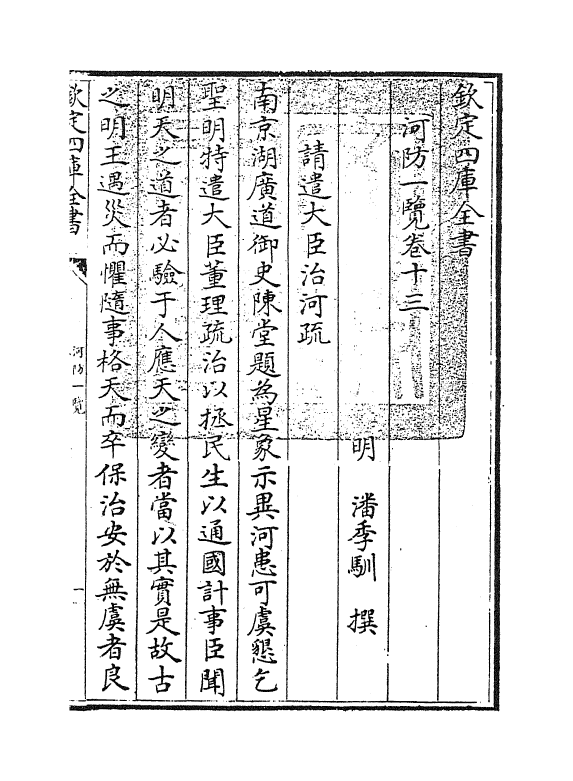 欽定四庫全書
河防一覽卷十三
明 潘季馴 撰
請遣大臣治河疏
南京湖廣道御史陳堂題為星象示異河患可虞懇乞
聖明特遣大臣董理疏治以拯民生以通國計事臣聞
明天之道者必驗于人應天之變者當以其實是故古
之明王遇災而懼隨事格天而卒保治安於無虞者良
欽定四庫全書
河防一覽
一